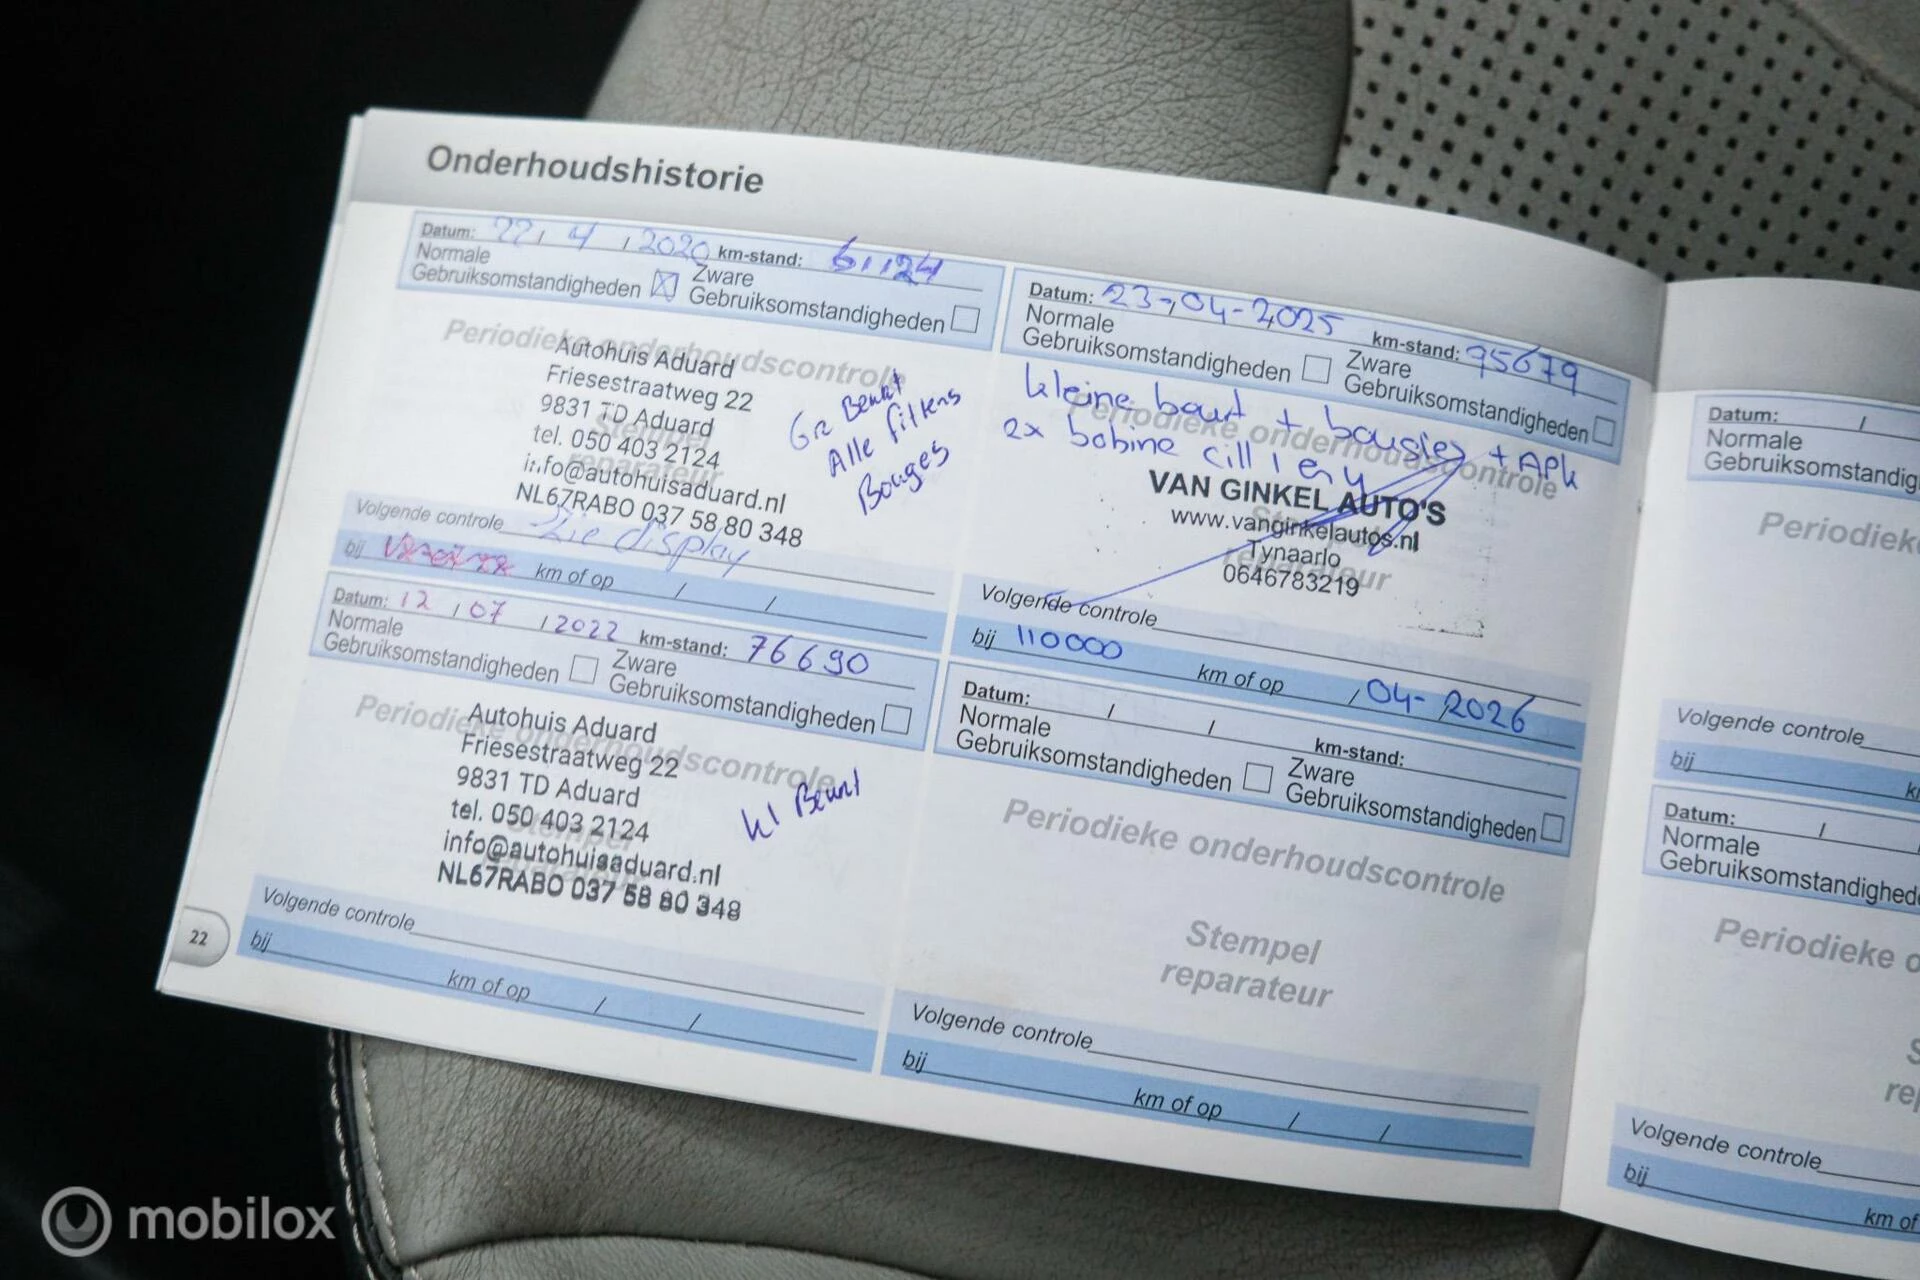 Onderhoudshistorie
Datum: 22 / 4 / 2020 km-stand: 61124
Normale
Gebruiksomstandigheden
Zware
Gebruiksomstandigheden
Periodieke onderhoudscontrole
Stempel
reparateur
Autohuis Aduard
Friesestraatweg 22
9831 TD Aduard
tel. 050 403 2124
info@autohuisaduard.nl
NL67RABO 037 58 80 348
Gr Beurt
Alle filters
Bougies
Volgende controle Zie display
bij km of op / /
Datum: 12 / 07 / 2022 km-stand: 76690
Normale
Gebruiksomstandigheden
Zware
Gebruiksomstandigheden
Periodieke onderhoudscontrole
Stempel
reparateur
Autohuis Aduard
Friesestraatweg 22
9831 TD Aduard
tel. 050 403 2124
info@autohuisaduard.nl
NL67RABO 037 58 80 348
kl Beurt
Volgende controle
bij km of op / /
22
Datum: 23-04-2025 km-stand: 95679
Normale
Gebruiksomstandigheden
Zware
Gebruiksomstandigheden
kleine beurt + bougies + APK
2x bobine cill 1 en 4
Periodieke onderhoudscontrole
Stempel
reparateur
VAN GINKEL AUTO'S
www.vanginkelautos.nl
Tynaarlo
0646783219
Volgende controle
bij 110000 km of op / 04-2026
Datum: / / km-stand:
Normale
Gebruiksomstandigheden
Zware
Gebruiksomstandigheden
Periodieke onderhoudscontrole
Stempel
reparateur
Volgende controle
bij km of op / /
Datum: /
Normale
Gebruiksomstandig
Periodiek
Volgende controle
bij k
Datum: /
Normale
Gebruiksomstandighede
Periodieke o
S
rep
Volgende controle
bij
km of
mobilox